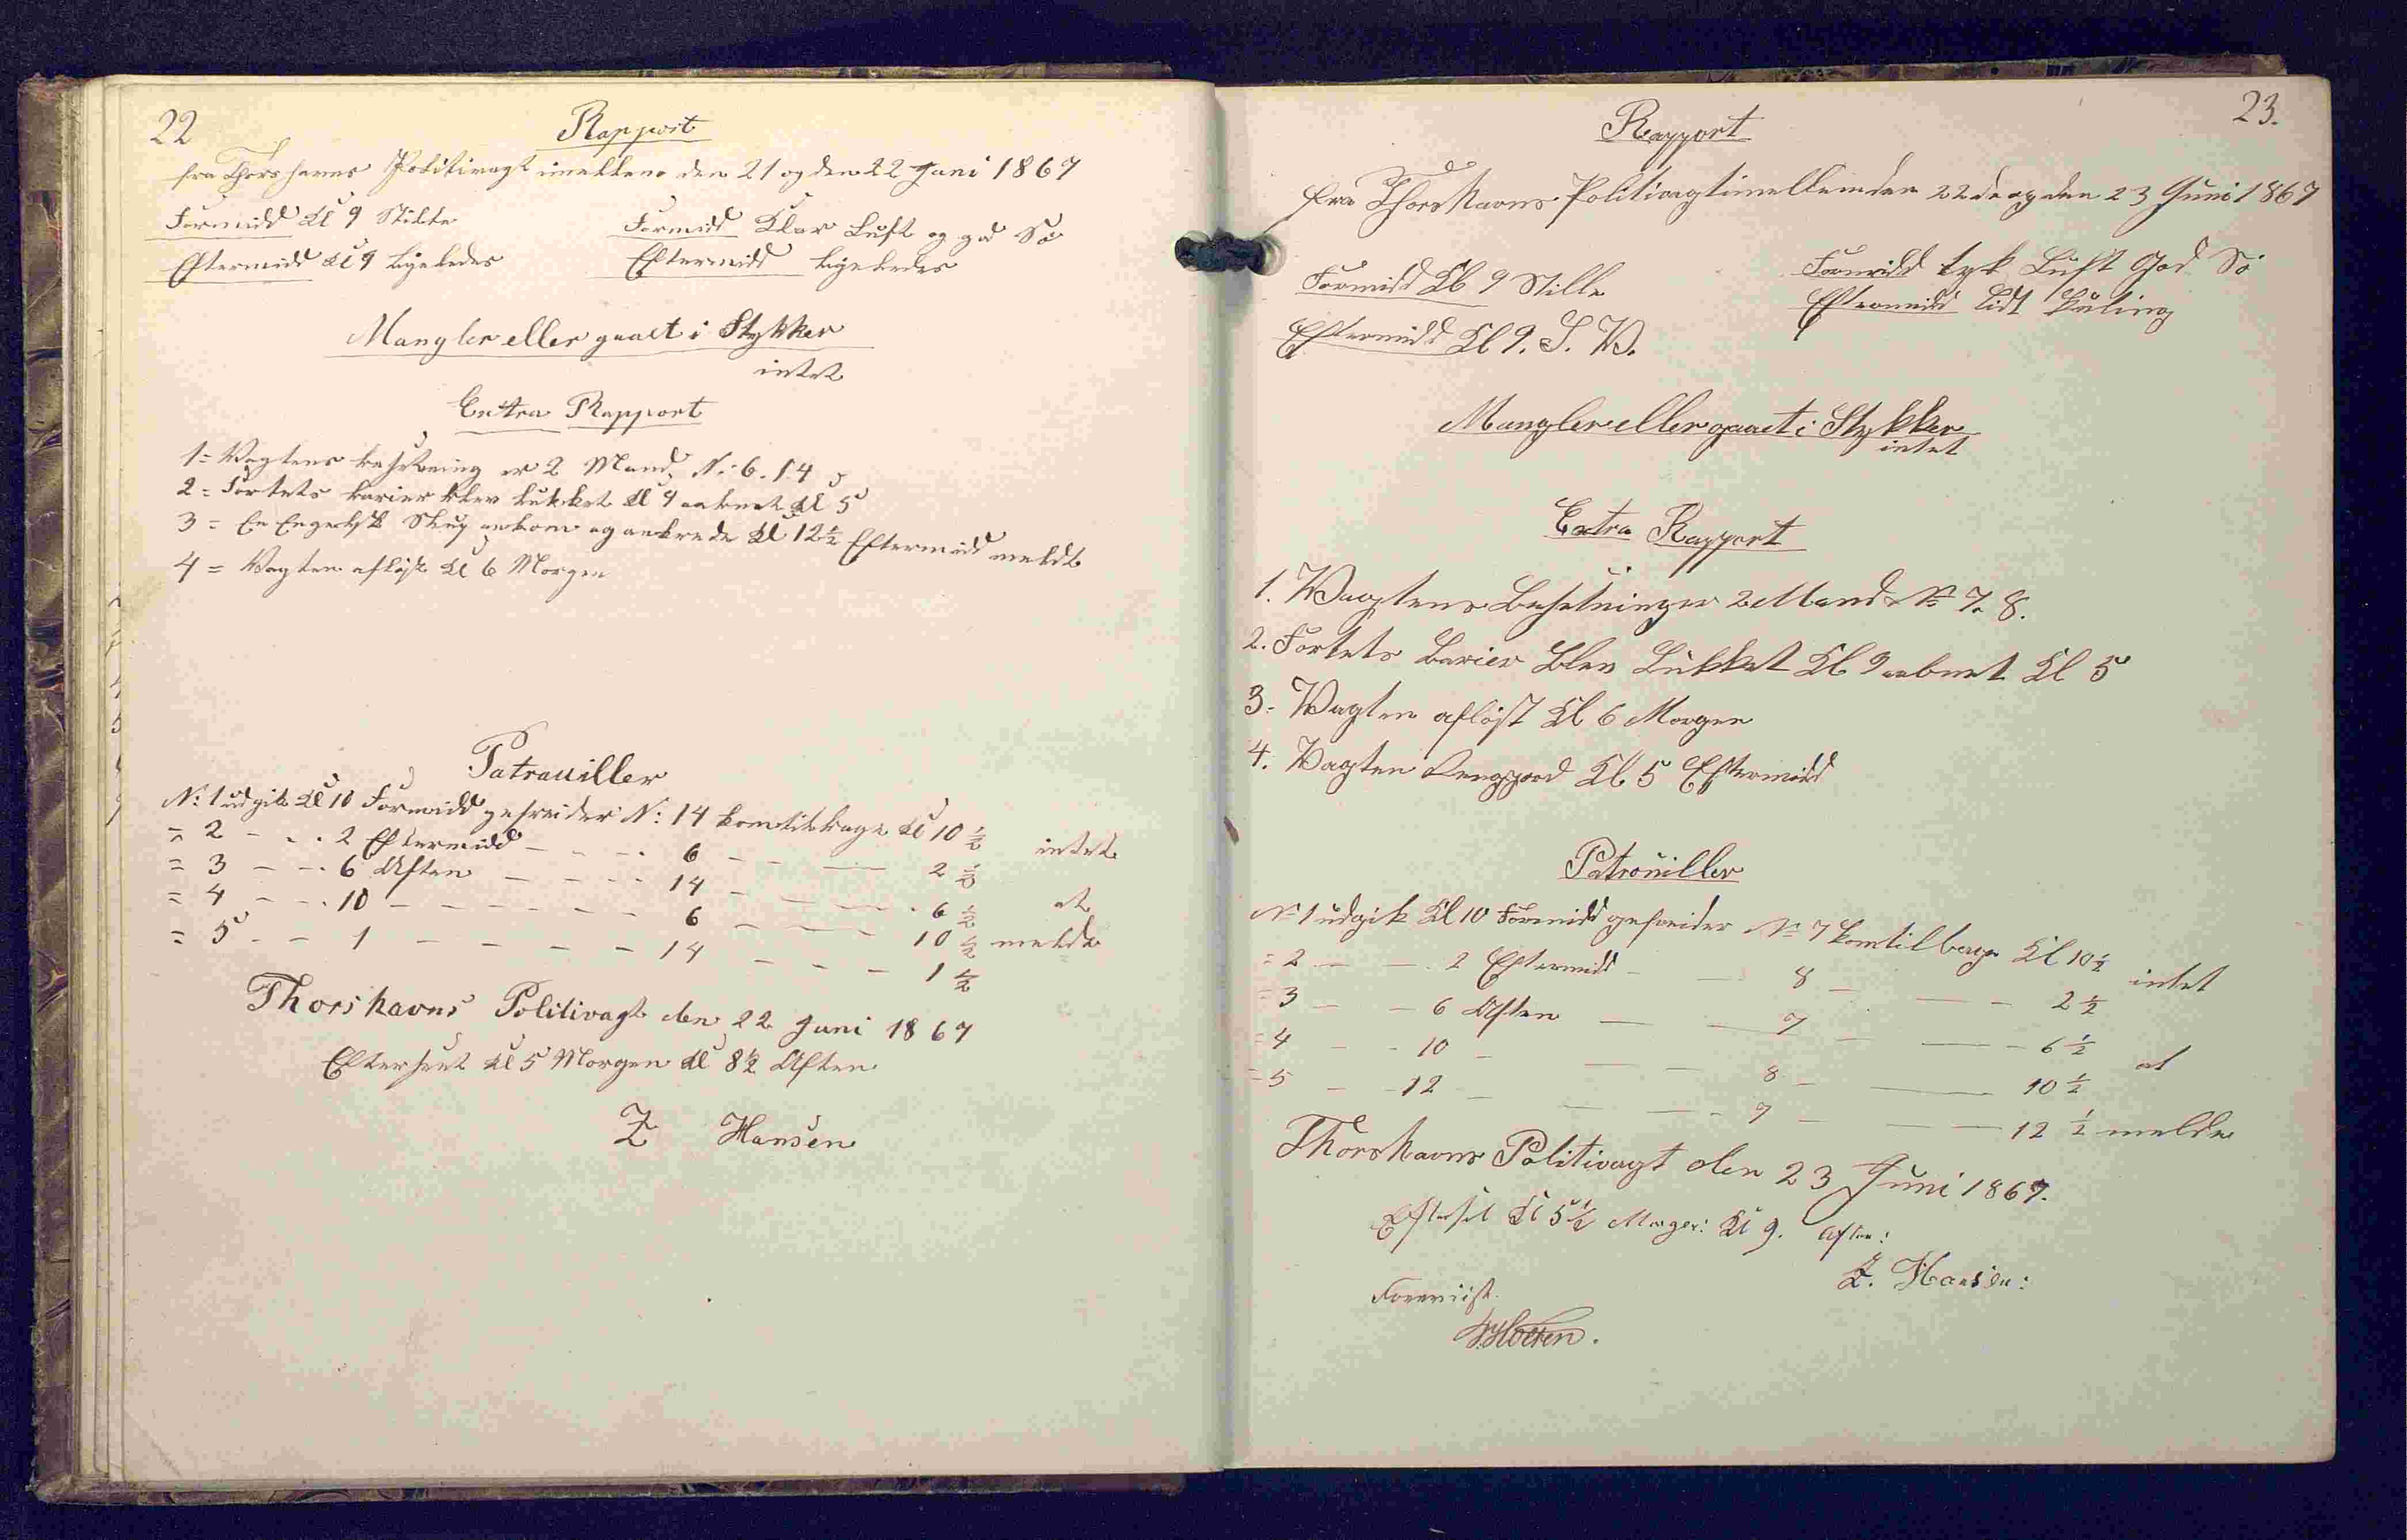 22
Rapport
fra Thorshavns Politivagt imellem den 21 og den 22 Juni 1867
Formidd Kl 9 Stille
Formidd Klar Luft og god Sö
Eftermidd Kl 9 ligeledes
Eftermidd ligeledes
Mangler eller gaaet i Stykker
intet
Extra Rapport
1 = Vagtens besetning er 2 Mand No 6. 14
2 = Fortets barier blev lukket Kl 9 aabnet Kl 5
3 = En Engelsk Slup ankom og ankrede Kl 12½ Eftermidd meldt
4 = Vagten aflöst Kl 6 Morgen
Patrouiller
No: 1 udgik Kl 10 Formidd gefreider No: 14 kom tilbage Kl 10 ½ intet
= 2 - - - 2 Eftermidd - - - - 6 - - — 2 ½
= 3 - - - 6 Aften - - - - 14 - - - - 6 ½ at
= 4 - - - 10 - - - - - - 6 - - - - 10 ½ melde
= 5 - - 1 - - - - 14 - - - 1 ½
Thorshavns Politivagt den 22 Juni 1867
Efterseet Kl 5 Morgen Kl 8½ Aften
Z Hansen
23.
Rapport
fra Thorshavns Politivagt imellem den 22de og den 23 Juni 1867
Formidd Kl 9 Stille
Formidd tyk Luft God Sö
Eftermidd Kl 9. S. V.
Eftermidd lidt Kuling
Mangler eller gaaet i Stykker
intet
Extra Rapport
1. Vagtens Besetning er 2 Mand No 7. 8.
2. Fortets Barier Blev Lukket Kl 9 aabnet Kl 5
3. Vagten aflöst Kl 6 Morgen
4. Vagten Kl 5 Eftermidd
Patrouiller
No 1 udgik Kl 10 Formidd gefreider No 7 kom tilbage Kl 10½ intet
= 2 — — - 2 Eftermidd - — 8 — — - 2 ½
= 3 — - 6 Aften — - 7 — — - 6 ½ at
= 4 - - 10 - — — 8 - — 10 ½
= 5 - - 12 - — — - 7 — — 12 ½ melde
Thorshavns Politivagt den 23 Juni 1867.
Efterset Kl 5½ Morgen: Kl 9. Aften:
Z. Hansen:
Foreviist.